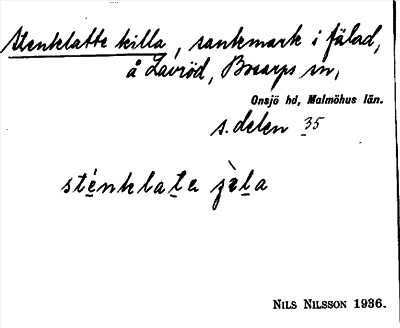 Stenklatte killa, sankmark i fälad,
å Lavröd, Bosarps sn,
Onsjö hd, Malmöhus län.
s. delen 35
sténklata jèla
NILS NILSSON 1936.